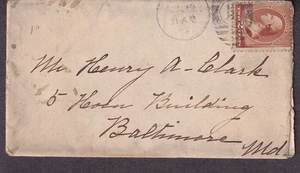 Mr Henry A. Clark
5 Hoen Building
Baltimore
Md.